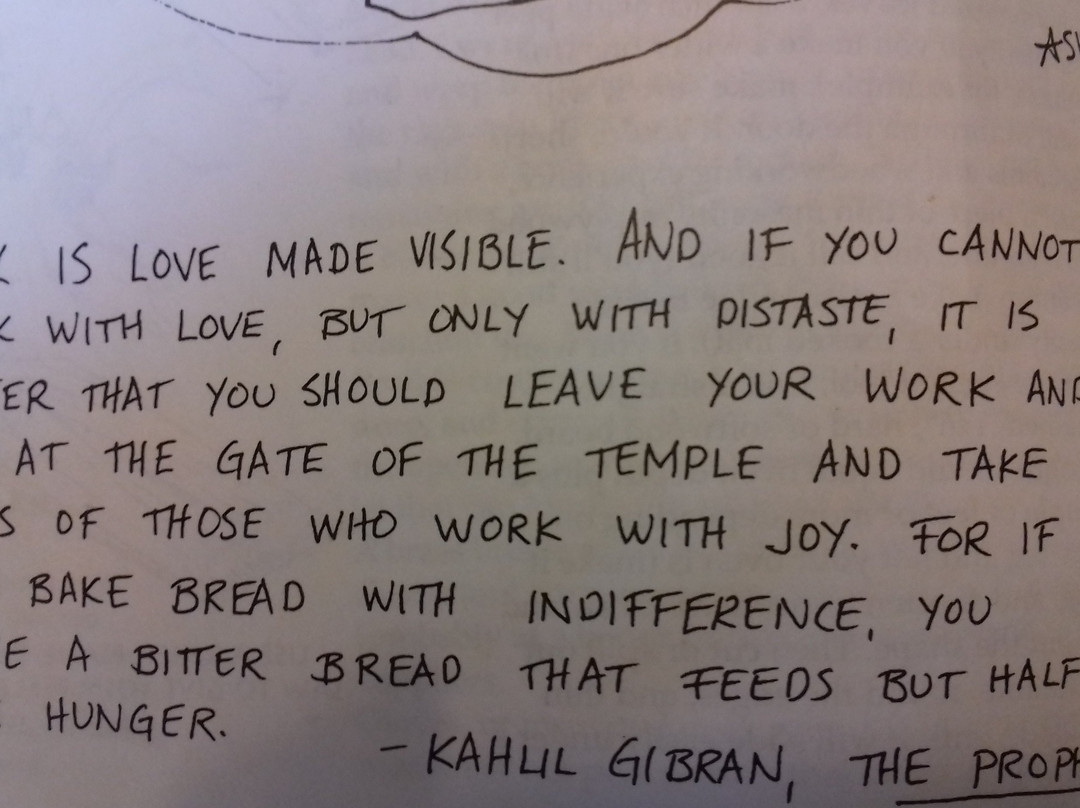 AS
IS LOVE MADE VISIBLE. AND IF YOU CANNOT
WITH LOVE, BUT ONLY WITH DISTASTE, IT IS
ER THAT YOU SHOULD LEAVE YOUR WORK AND
AT THE GATE OF THE TEMPLE AND TAKE
S OF THOSE WHO WORK WITH JOY. FOR IF
BAKE BREAD WITH INDIFFERENCE, YOU
E A BITTER BREAD THAT FEEDS BUT HALF
HUNGER.
- KAHLIL GIBRAN, THE PROPH